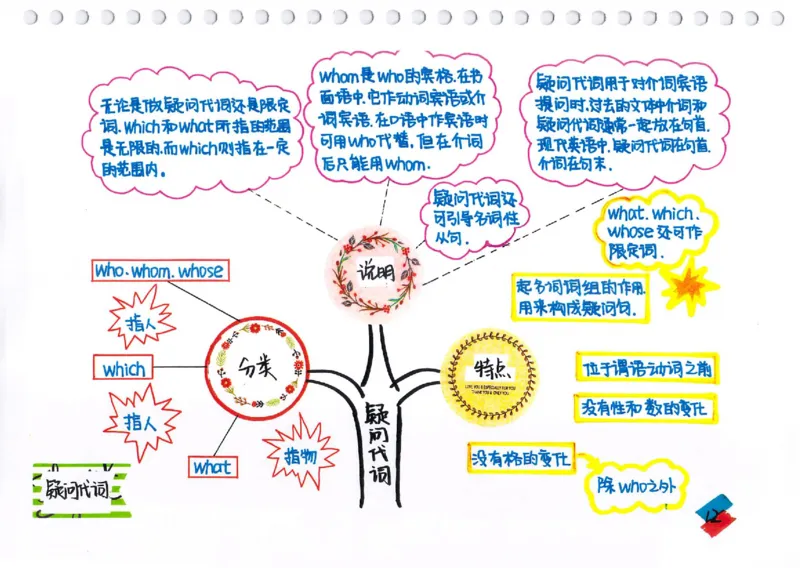 无论是做疑问代词还是限定
词.which和what所指的范围
是无限的,而which则指在一定
的范围内。
whom是who的宾格.在书
面语中,它作动词宾语或介
词宾语.在口语中作宾语时
可用who代替,但在介词
后只能用whom.
疑问代词用于对介词宾语
提问时,过去的文体中介词和
疑问代词通常一起放在句首.
现代英语中,疑问代词在句首
介词在句末.
疑问代词还
可引导名词性
从句.
what.which.
whose还可作
限定词.
说明
who.whom.whose
指人
which
指人
what
指物
分类
起名词词组的作用
用来构成疑问句.
特点
位于谓语动词之前
没有性和数的变化
没有格的变化
除who之外
疑问代词
疑问代词
12